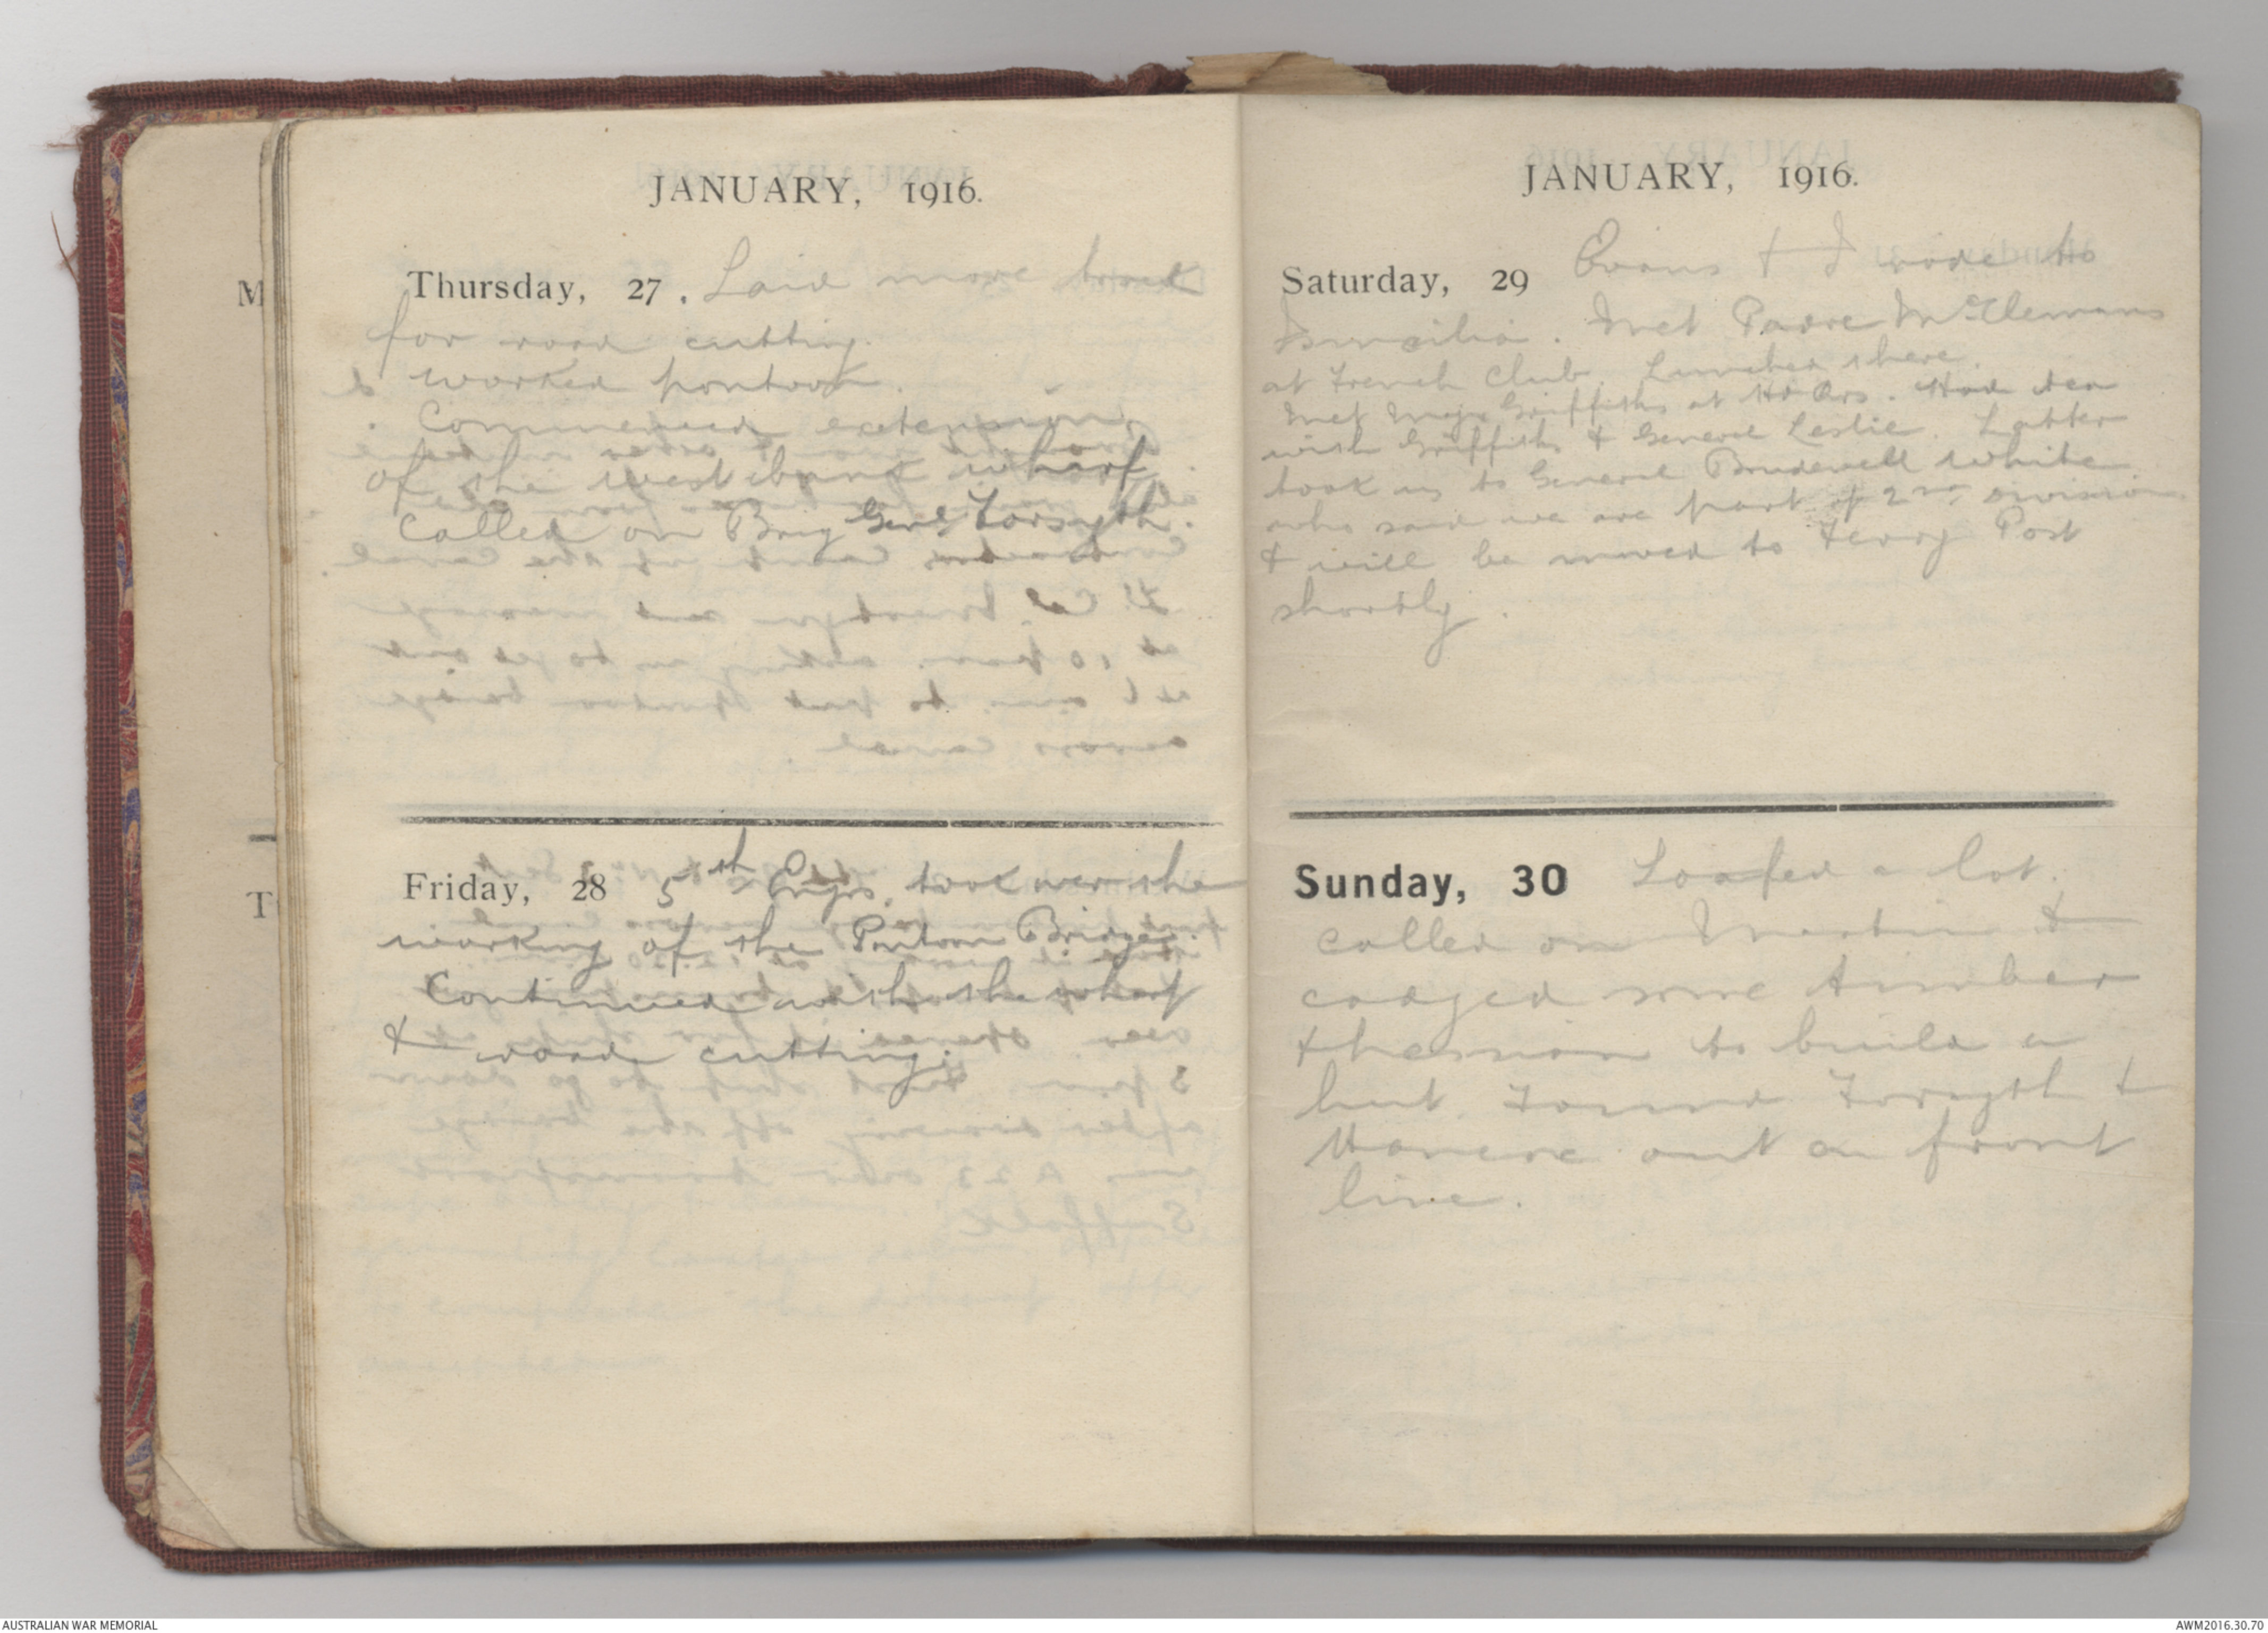 JANUARY, 1916.
Thursday, 27. Laid more track
for road cutting.
& worked pontoon.
Commenced extension
of the west bank wharf
Called on Brig Genl Forsyth.
Friday, 28 5th Engrs. took over the
working of the Pontoon Bridge.
Continued with the wharf
& road cutting.
JANUARY, 1916.
Saturday, 29 Evans & I rode to
Ismailia. Met Padre McClemans
at French Club. Lunched there.
Met Major Griffiths at Hd Qrs. Had tea
with Griffiths & General Leslie. Latter
took us to General Brudenell White
who said we are part of 2nd Division
& will be moved to Ferry Post
shortly.
Sunday, 30 Loafed a lot.
called on Martin &
cadged some timber
& hessian to build a
hut. Found Forsyth &
out on front
line.
M
T
AUSTRALIAN WAR MEMORIAL
AWM2016.30.70